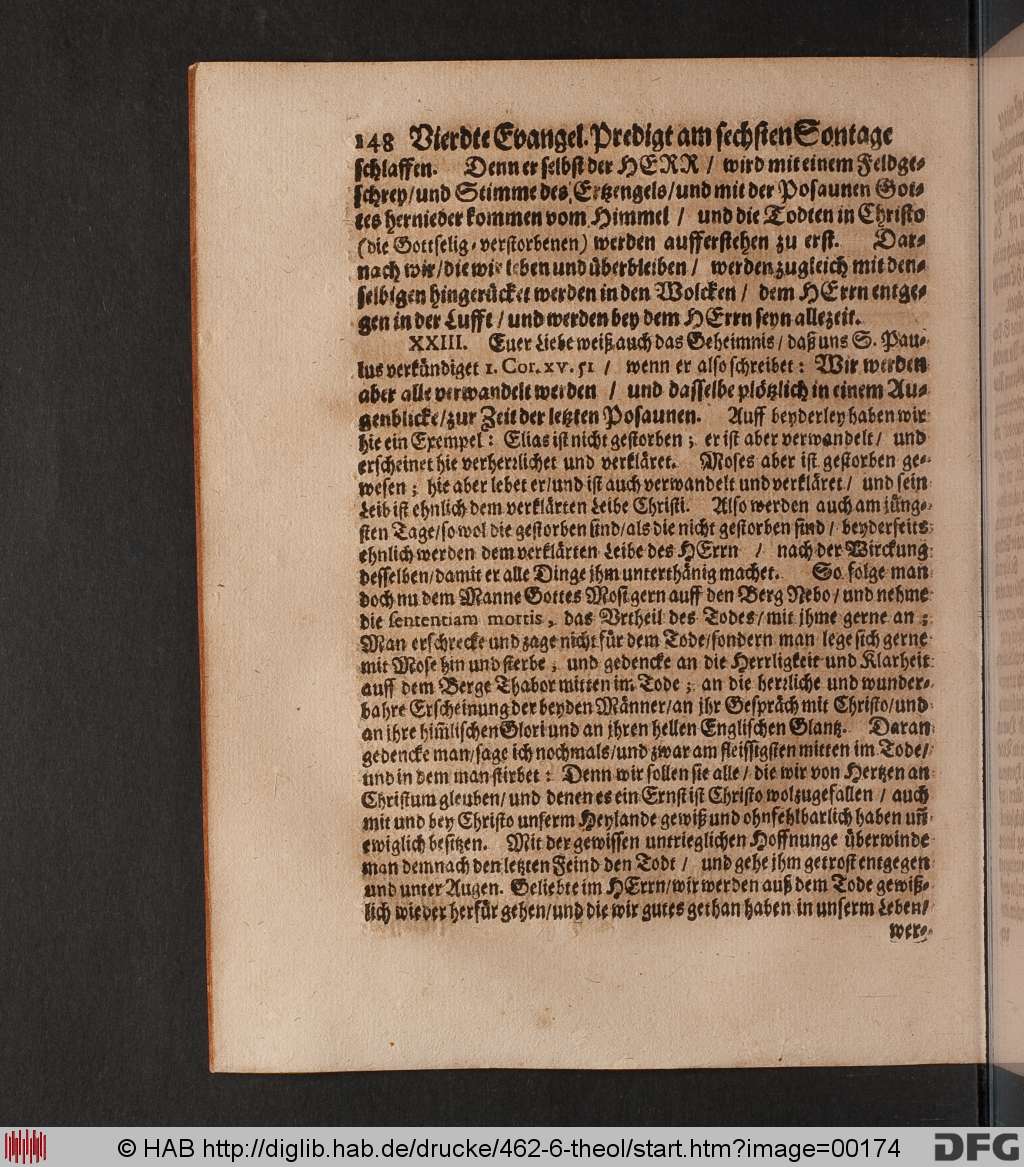 148 Vierdte Evangel. Predigt am sechsten Sontage
schlaffen. Denn er selbst der HERR / wird mit einem Feldge-
schrey/und Stimme des Ertzengels/und mit der Posaunen Got-
tes hernieder kommen vom Himmel / und die Todten in Christo
(die Gottselig-verstorbenen) werden aufferstehen zu erst. Dar-
nach wir/die wir leben und überbleiben / werden zugleich mit den-
selbigen hingerücket werden in den Wolcken / dem HErrn entge-
gen in der Lufft / und werden bey dem HErrn seyn allezeit.
XXIII. Euer Liebe weiß auch das Geheimnis / daß uns S. Pau-
lus verkündiget 1. Cor. xv. 51 / wenn er also schreibet: Wir werden
aber alle verwandelt werden / und dasselbe plötzlich in einem Au-
genblicke/zur Zeit der letzten Posaunen. Auff beyderley haben wir
hie ein Exempel: Elias ist nicht gestorben; er ist aber verwandelt / und
erscheinet hie verherrlichet und verkläret. Moses aber ist gestorben ge-
wesen; hie aber lebet er/und ist auch verwandelt und verkläret / und sein
Leib ist ehnlich dem verklärten Leibe Christi. Also werden auch am jüng-
sten Tage/so wol die gestorben sind/als die nicht gestorben sind / beyderseits
ehnlich werden dem verklärten Leibe des HErrn / nach der Wirckung
desselben/damit er alle Dinge jhm unterthänig machet. So folge man
doch nu dem Manne Gottes Mosi gern auff den Berg Nebo / und nehme
die sententiam mortis, das Urtheil des Todes/mit jhme gerne an;
Man erschrecke und zage nicht für dem Tode/sondern man lege sich gerne
mit Mose hin und sterbe; und gedencke an die Herrligkeit und Klarheit
auff dem Berge Thabor mitten im Tode; an die herrliche und wunder-
bahre Erscheinung der beyden Männer/an jhr Gespräch mit Christo/und
an jhre him̃lischen Glori und an jhren hellen Englischen Glantz. Daran
gedencke man/sage ich nochmals/und zwar am fleissigsten mitten im Tode/
und in dem man stirbet: Denn wir sollen sie alle / die wir von Hertzen an
Christum gleuben/und denen es ein Ernst ist Christo wolzugefallen / auch
mit und bey Christo unserm Heylande gewiß und ohnfehlbarlich haben uñ
ewiglich besitzen. Mit der gewissen untrieglichen Hoffnunge überwinde
man demnach den letzten Feind den Todt / und gehe jhm getrost entgegen
und unter Augen. Geliebte im HErrn/wir werden auß dem Tode gewiß-
lich wieder herfür gehen/und die wir gutes gethan haben in unserm Leben/
wer-
© HAB http://diglib.hab.de/drucke/462-6-theol/start.htm?image=00174
DFG